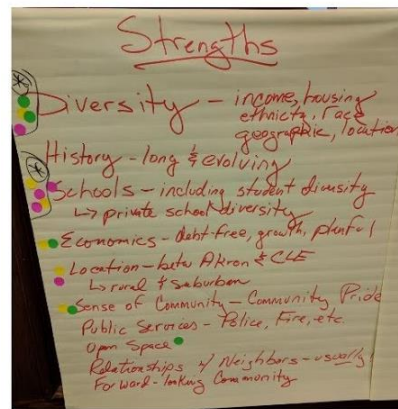 Strengths
Diversity - income, housing
ethnicity, race
geographic, location
History - long & evolving
Schools - including student diversity
↳ private school diversity
Economics - debt-free, growth, planful
Location - betw Akron & CLE
↳ rural & suburban
Sense of Community - Community Pride
Public Services - Police, Fire, etc.
Open Space
Relationships w/ Neighbors - usually
Forward-looking Community